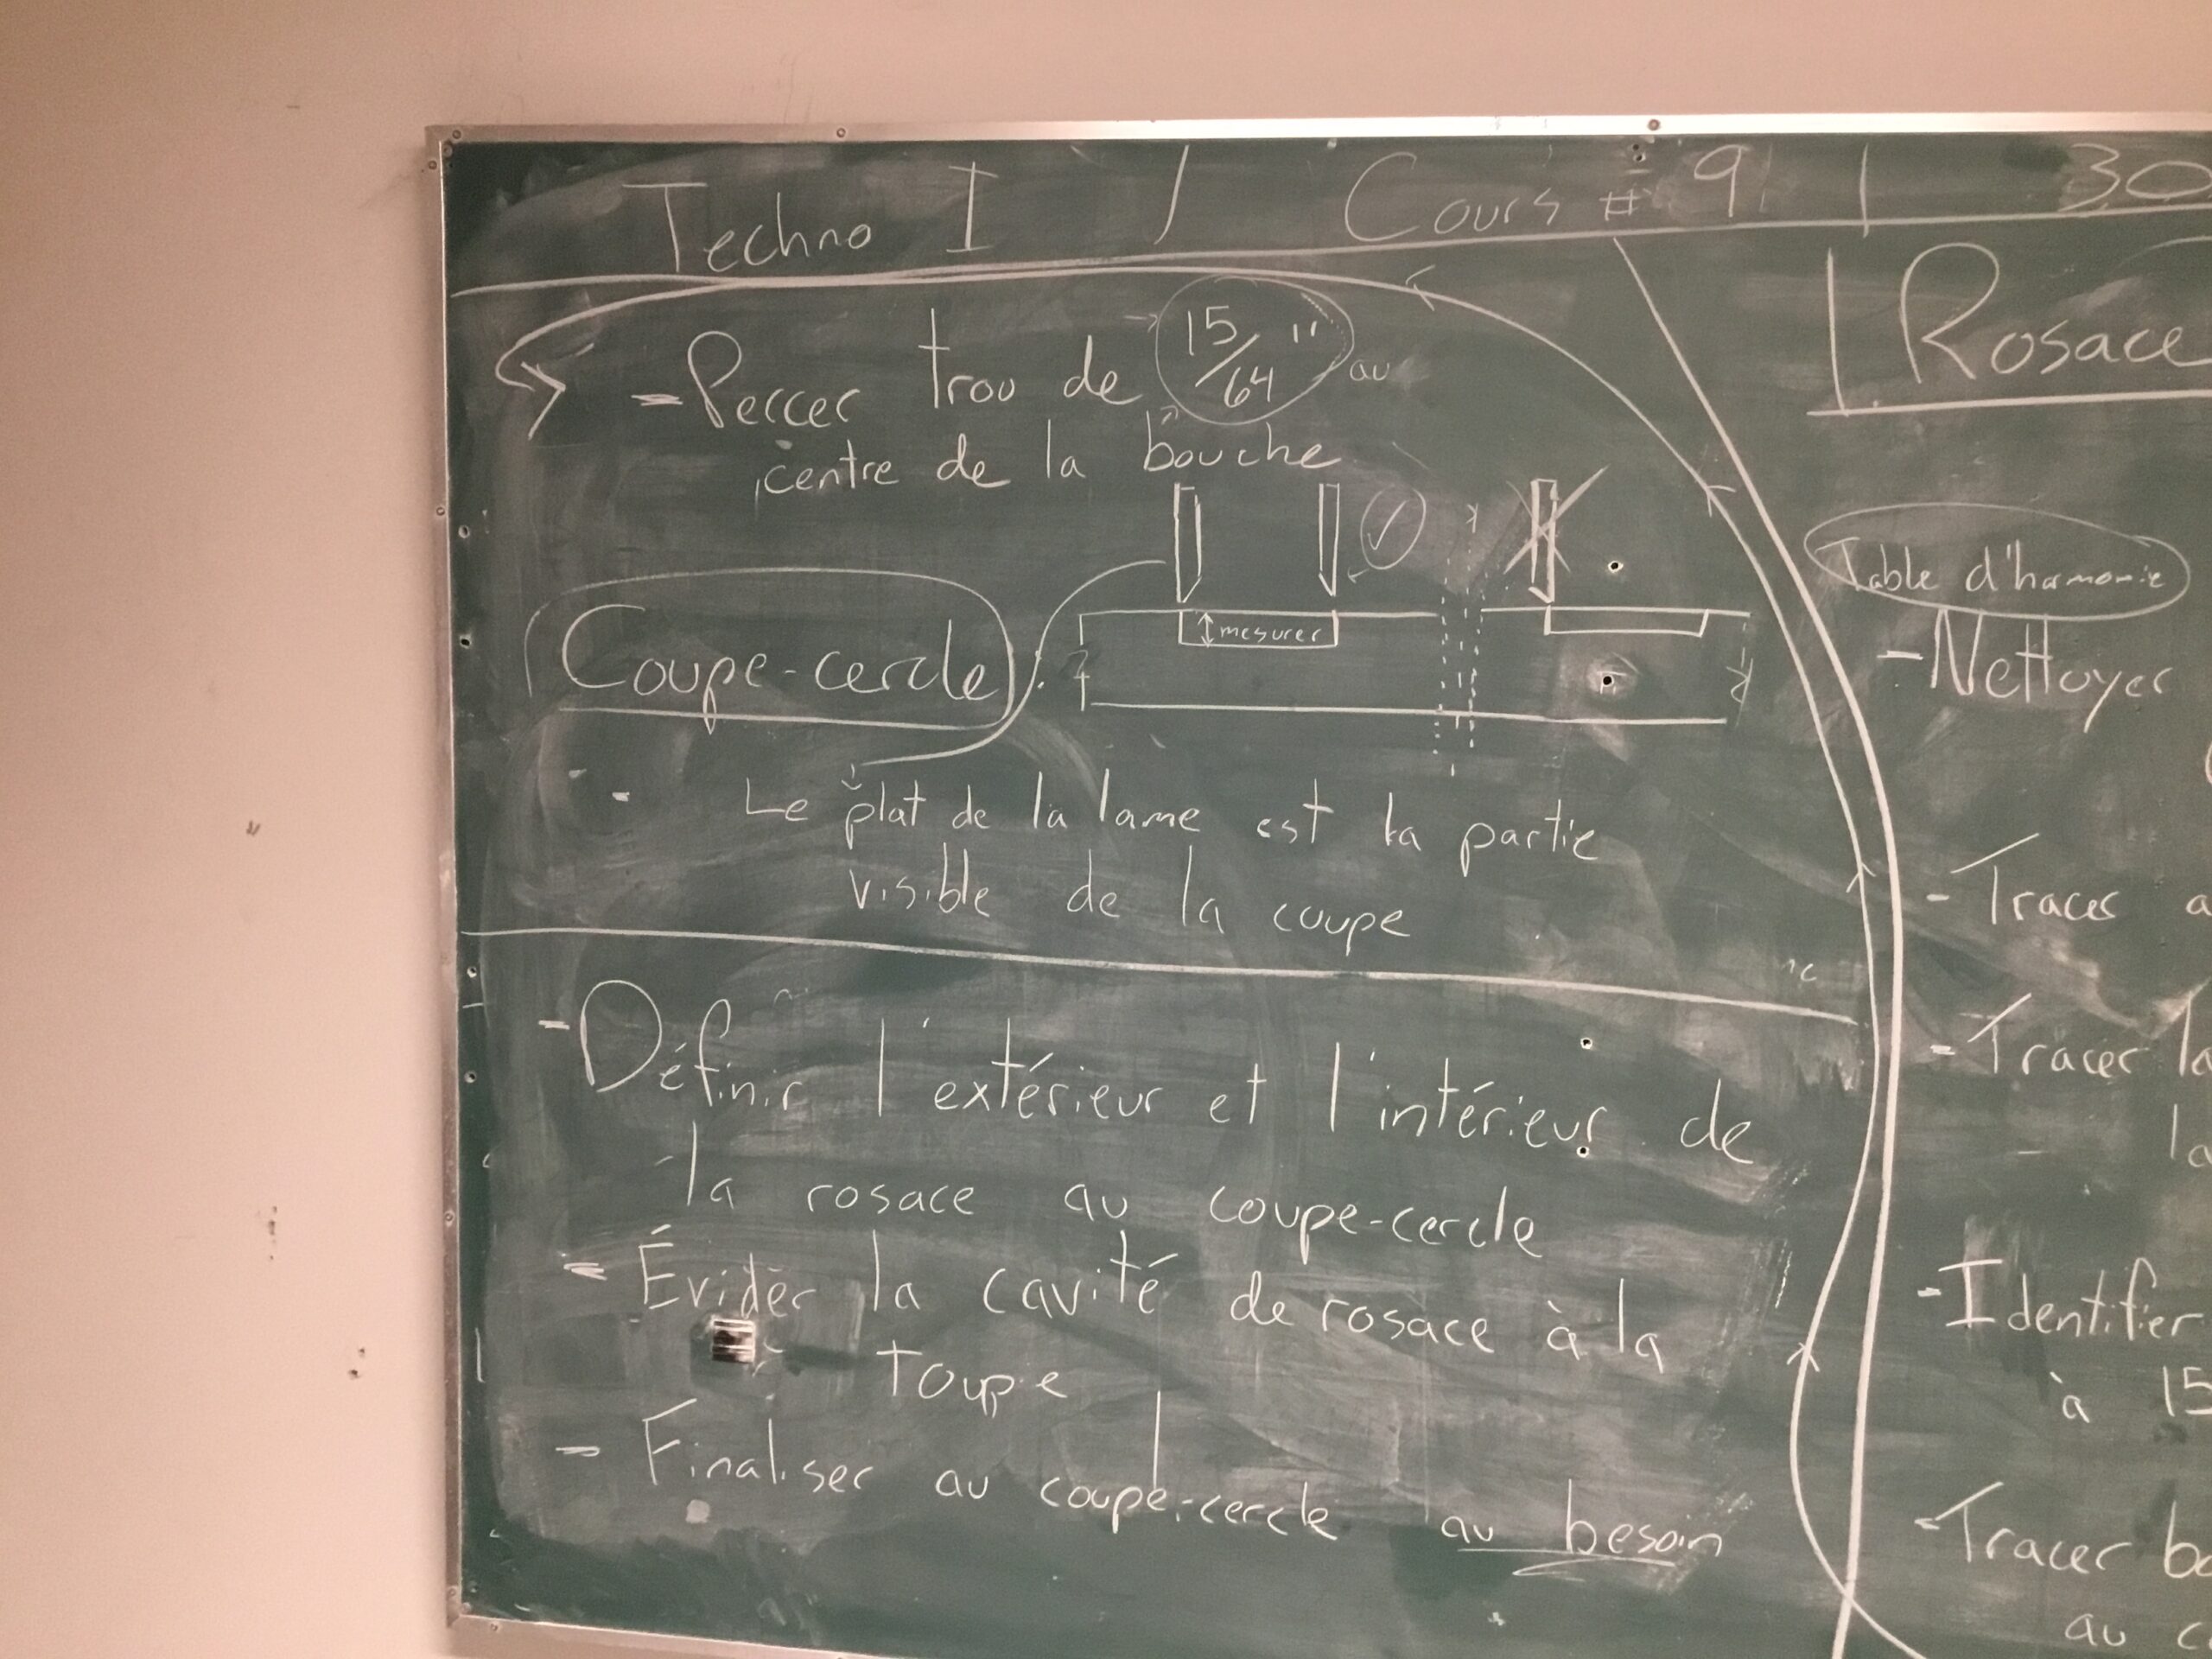 Techno I / Cours # 9 | 30
- Percer trou de 15/64" au
centre de la bouche
mesurer
Coupe-cercle
- Le plat de la lame est la partie
visible de la coupe
- Définir l'extérieur et l'intérieur de
la rosace au coupe-cercle
- Évider la cavité de rosace à la
toupie
- Finaliser au coupe-cercle au besoin
Rosace
Table d'harmonie
- Nettoyer
- Tracer a
- Tracer la
la
- Identifier
à 15
- Tracer bo
au c